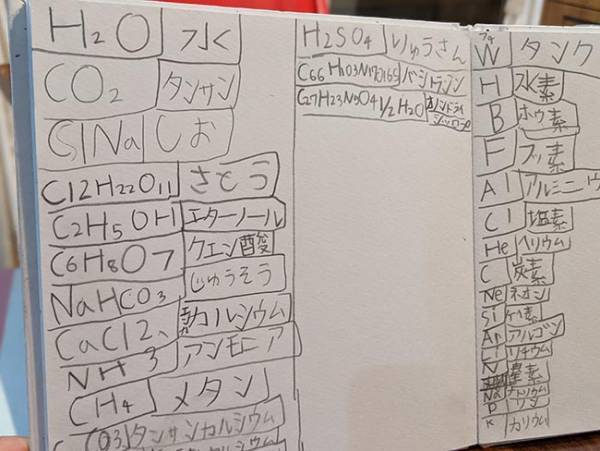 H2O 水
CO2 タンサン
ClNa しお
C12H22O11 さとう
C2H5OH エターノール
C6H8O7 クエン酸
NaHCO3 じゅうそう
CaCl2 カルシウム
NH3 アンモニア
CH4 メタン
CO3 タンサンカルシウム
H2SO4 りゅうさん
C66H103N17O16S バシトラシン
C27H23N5O4 1/2 H2O
W タンク
H 水素
B ホウ素
F フッ素
Al アルミニウ
Cl 塩素
He ヘリウム
C 炭素
Ne ネオン
Si ケイ素
Ar アルゴン
リチウム
N 窒素
Na ナトリウム
P リン
K カリウム